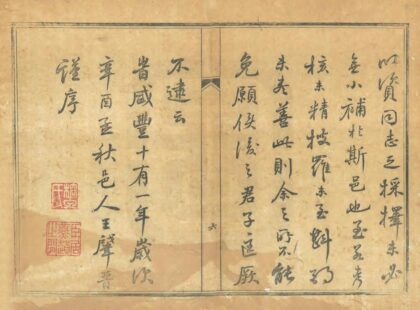 以資同志之採擇未必
無小補於斯邑也至若考
核未精搜羅未至斟酌
未盡善此則余之所不能
免願俟後之君子匡厥
不逮云
時咸豐十有一年歲次
辛酉孟秋邑人王聲晉
謹序
六